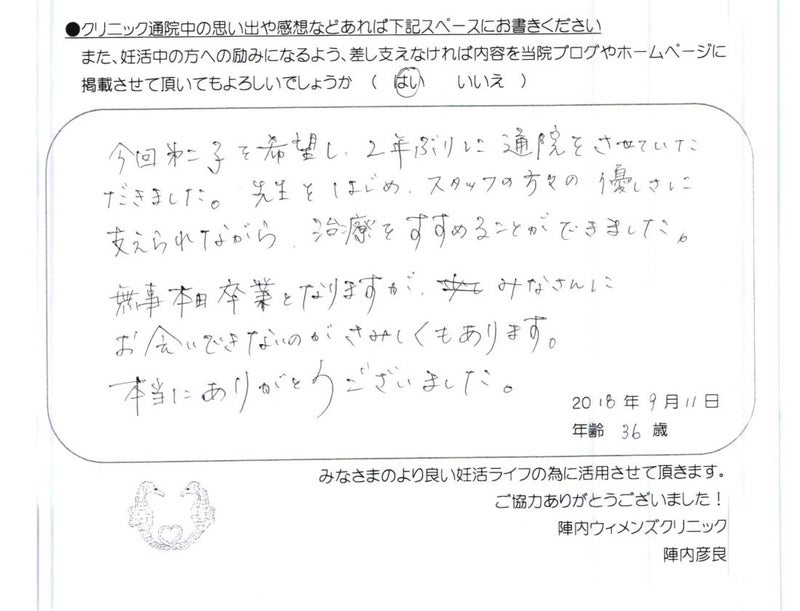 ●クリニック通院中の思い出や感想などあれば下記スペースにお書きください
また、妊活中の方への励みになるよう、差し支えなければ内容を当院ブログやホームページに
掲載させて頂いてもよろしいでしょうか ( はい いいえ )
今回第二子を希望し、2年ぶりに通院をさせていた
だきました。先生をはじめ、スタッフの方々の優しさに
支えられながら、治療をすすめることができました。
無事本日卒業となりますが、みなさんに
お会いできないのがさみしくもあります。
本当にありがとうございました。
2018年9月11日
年齢 36 歳
みなさまのより良い妊活ライフの為に活用させて頂きます。
ご協力ありがとうございました!
陣内ウィメンズクリニック
陣内彦良